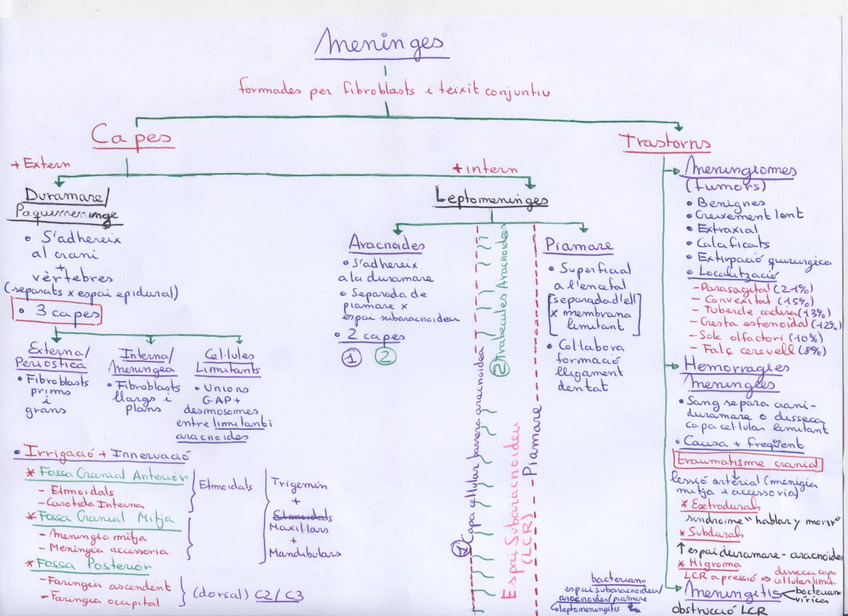 Meninges
formades per fibroblasts i teixit conjuntiu
Capes
Trastorns
+ Extern
+ intern
Duramare/
Paquimeninge
• S'adhereix
al crani
+
vèrtebres
(separats x espai epidural)
• 3 capes
Externa/
Periòstica
• Fibroblasts
prims
i
grans
Interna/
Meníngea
• Fibroblasts
llargs i
plans
Cèl·lules
Limitants
• Unions
GAP +
desmosomes
entre limitant i
aracnoides
• Irrigació + Innervació
* Fossa Cranial Anterior
- Etmoidals
- Caròtida Interna
Etmoidals
* Fossa Cranial Mitja
- Meníngia mitja
- Meníngia accessoria
* Fossa Posterior
- Faríngia ascendent
- Faríngia occipital
(dorsal) C2/C3
Trigemin
+
Etmoidals
Maxil·lars
+
Mandibulars
Leptomeninges
Aracnoides
• S'adhereix
a la duramare
• Separada de
piamare x
espai subaracnoideu
• 2 capes
1 2
1 Capa cel·lular barrera aracnoidea
2 Trabècules Aracnoides
Espai Subaracnoideu
(LCR)
Piamare
Piamare
• Superficial
a l'encèfal
[separada d'ell
x membrana
limitant]
• Col·labora
formació
lligament
dentat
Meningiomes
(tumors)
• Benignes
• Creixement lent
• Extraxial
• Calcificats
• Extirpació quirúrgica
• Localització
- Parasagital (21%)
- Convexitat (15%)
- Tubercle cadira (13%)
- Cresta esfenoidal (12%)
- Solc olfactori (10%)
- Falç cervell (8%)
Hemorràgies
Meníngees
• Sang separa crani-
duramare o disseca
capa cel·lular limitant
• Causa + freqüent
traumatisme cranial
Lesió arterial (meníngia
mitja + accessoria)
* Extradurals
síndrome "hablar y morir"
* Subdurals
↑ espai duramare - aracnoides
* Higroma
LCR a pressió ⇒ disseca capa
cèl·lules limit.
Meningitis
bacteriana
vírica
obstrucció LCR
bacteriana
espai subaracnoideu/
aracnoides/piamare
(leptomeningitis)